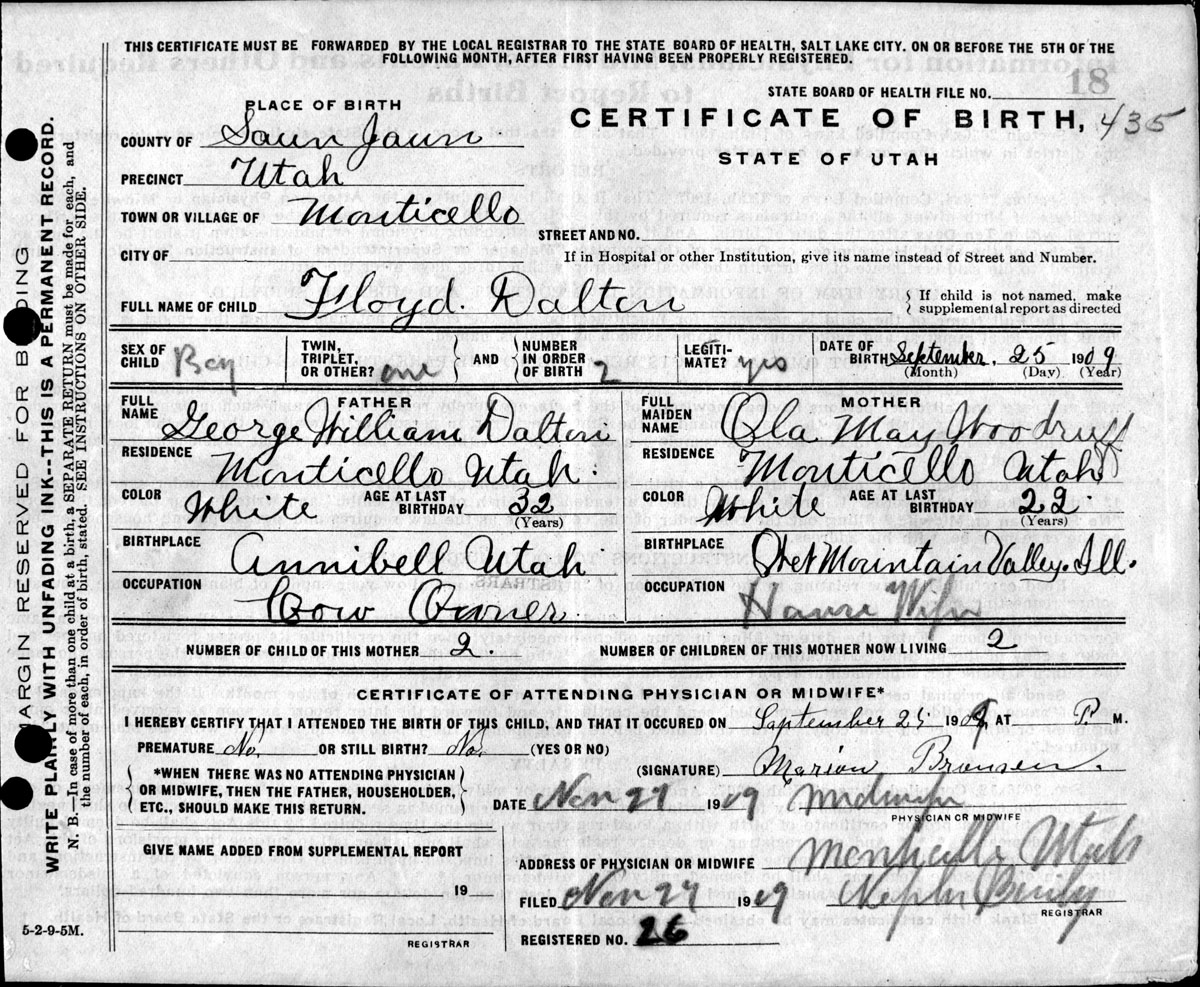 THIS CERTIFICATE MUST BE FORWARDED BY THE LOCAL REGISTRAR TO THE STATE BOARD OF HEALTH, SALT LAKE CITY. ON OR BEFORE THE 5TH OF THE
FOLLOWING MONTH, AFTER FIRST HAVING BEEN PROPERLY REGISTERED.
STATE BOARD OF HEALTH FILE NO. 18
PLACE OF BIRTH
CERTIFICATE OF BIRTH, 435
COUNTY OF Saun Jaun
STATE OF UTAH
PRECINCT Utah
TOWN OR VILLAGE OF Monticello
STREET AND NO.
CITY OF
If in Hospital or other Institution, give its name instead of Street and Number.
FULL NAME OF CHILD Floyd. Dalton
{ If child is not named, make
supplemental report as directed
SEX OF CHILD Boy
TWIN, TRIPLET, OR OTHER? one } AND { NUMBER IN ORDER OF BIRTH 2
LEGITI-MATE? yes
DATE OF BIRTH September. 25 1909
(Month) (Day) (Year)
FATHER
FULL NAME George William Dalton
RESIDENCE Monticello Utah.
COLOR White AGE AT LAST BIRTHDAY 32
(Years)
BIRTHPLACE Annibell Utah
OCCUPATION Cow Owner
MOTHER
FULL MAIDEN NAME Ola May Woodruff
RESIDENCE Monticello Utah
COLOR White AGE AT LAST BIRTHDAY 22.
(Years)
BIRTHPLACE Wet Mountain Valley. Ill.
OCCUPATION House Wife
NUMBER OF CHILD OF THIS MOTHER 2.
NUMBER OF CHILDREN OF THIS MOTHER NOW LIVING 2
CERTIFICATE OF ATTENDING PHYSICIAN OR MIDWIFE*
I HEREBY CERTIFY THAT I ATTENDED THE BIRTH OF THIS CHILD, AND THAT IT OCCURED ON September 25 1909 AT P. M.
PREMATURE No. OR STILL BIRTH? No. (YES OR NO)
{ *WHEN THERE WAS NO ATTENDING PHYSICIAN
OR MIDWIFE, THEN THE FATHER, HOUSEHOLDER,
ETC., SHOULD MAKE THIS RETURN. }
(SIGNATURE) Marion Bronsen.
DATE Nov 27 1909 Midwife
PHYSICIAN OR MIDWIFE
GIVE NAME ADDED FROM SUPPLEMENTAL REPORT
19
REGISTRAR
ADDRESS OF PHYSICIAN OR MIDWIFE Monticello Utah
FILED Nov 27 1909 Nephi
REGISTRAR
REGISTERED NO. 26
5-2-9-5M.
MARGIN RESERVED FOR BINDING
WRITE PLAINLY WITH UNFADING INK--THIS IS A PERMANENT RECORD.
N. B.—In case of more than one child at a birth, a SEPARATE RETURN must be made for each, and
the number of each, in order of birth, stated. SEE INSTRUCTIONS ON OTHER SIDE.